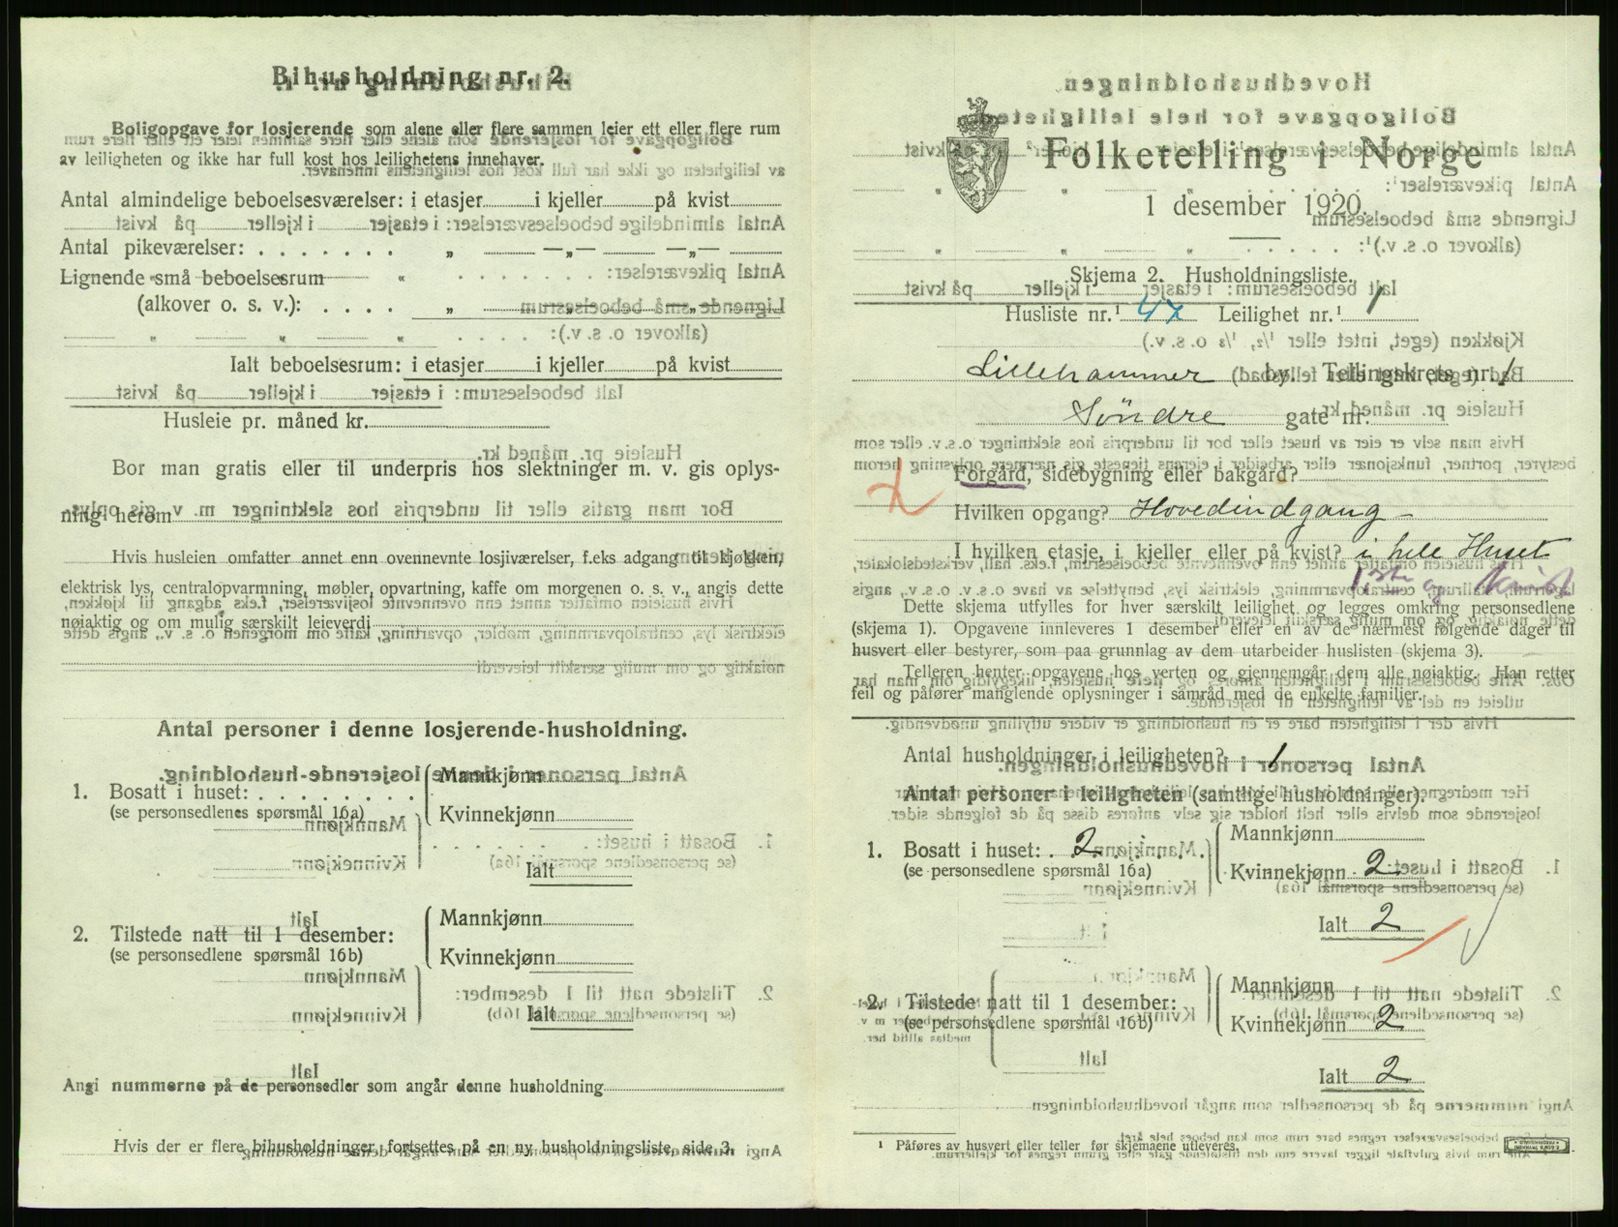 Bihusholdning nr. 2.
Boligopgave for losjerende som alene eller flere sammen leier ett eller flere rum
av leiligheten og ikke har full kost hos leilighetens innehaver.
Antal almindelige beboelsesværelser: i etasjer i kjeller på kvist
Antal pikeværelser: . . . . . . . „ —„— —„—
Lignende små beboelsesrum
(alkover o. s. v.): . . . . „ „ „
Ialt beboelsesrum: i etasjer i kjeller på kvist
Husleie pr. måned kr.
Bor man gratis eller til underpris hos slektninger m. v. gis oplys-
ning herom
Hvis husleien omfatter annet enn ovennevnte losjiværelser, f.eks adgang til kjøkken,
elektrisk lys, centralopvarmning, møbler, opvartning, kaffe om morgenen o. s. v., angis dette
nøiaktig og om mulig særskilt leieverdi
Antal personer i denne losjerende-husholdning.
1. Bosatt i huset: . . . . . . . . Mannkjønn
(se personsedlenes spørsmål 16a)
Kvinnekjønn
Ialt
2. Tilstede natt til 1 desember:
(se personsedlene spørsmål 16b)
Mannkjønn
Kvinnekjønn
Ialt
Angi nummerne på de personsedler som angår denne husholdning
Hvis der er flere bihusholdninger, fortsettes på en ny husholdningsliste, side 3.
Folketelling i Norge
1 desember 1920.
Skjema 2. Husholdningsliste.
Husliste nr.¹ 47 Leilighet nr.¹ 1
Lillehammer by. Tellingskrets nr. 1
Söndre gate nr.
Forgård, sidebygning eller bakgård?
Hvilken opgang? Hovedindgang -
I hvilken etasje, i kjeller eller på kvist? i hele Huset
1ste og Kvist
Dette skjema utfylles for hver særskilt leilighet og legges omkring personsedlene
(skjema 1). Opgavene innleveres 1 desember eller en av de nærmest følgende dager til
husvert eller bestyrer, som paa grunnlag av dem utarbeider huslisten (skjema 3).
Telleren henter opgavene hos verten og gjennemgår dem alle nøiaktig. Han retter
feil og påfører manglende oplysninger i samråd med de enkelte familier.
Antal husholdninger i leiligheten? 1
Antal personer i leiligheten (samtlige husholdninger).
1. Bosatt i huset: . 2 Mannkjønn
(se personsedlene spørsmål 16a)
Kvinnekjønn 2
Ialt 2
2. Tilstede natt til 1 desember: Mannkjønn
(se personsedlene spørsmål 16b)
Kvinnekjønn 2
Ialt 2
¹ Påføres av husvert eller teller før skjemaene utleveres.